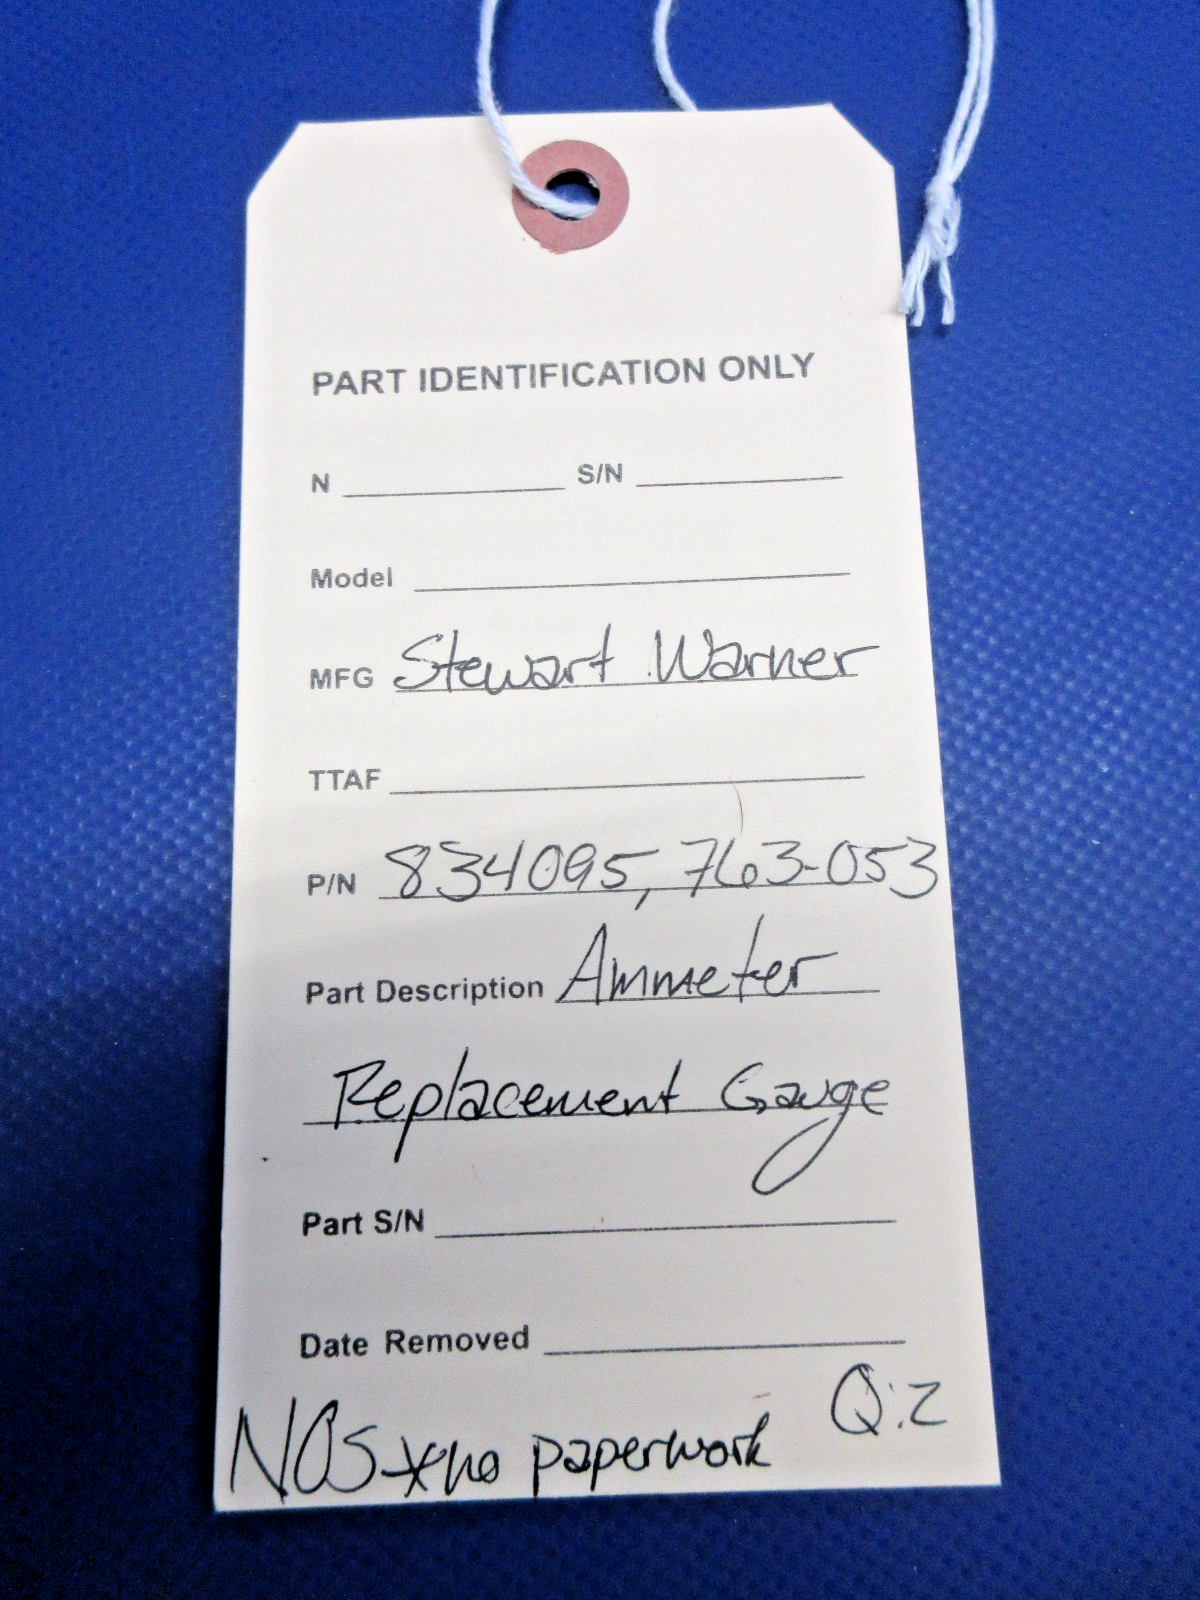 PART IDENTIFICATION ONLY
N S/N
Model
MFG Stewart Warner
TTAF
P/N 834095, 763-053
Part Description Ammeter
Replacement Gauge
Part S/N
Date Removed
Q:2
NOS *no paperwork